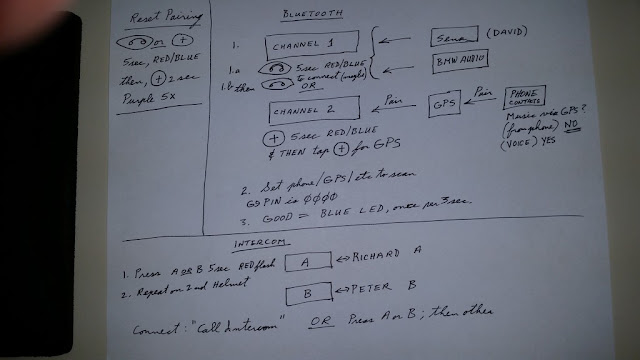 Reset Pairing
or +
5sec, RED/BLUE
then, + 2 sec
Purple 5x
BLUETOOTH
1. CHANNEL 1 Sena (DAVID)
BMW AUDIO
1.a 5sec RED/BLUE
1.b then to connect (maybe)
OR
CHANNEL 2 Pair GPS Pair PHONE CONTACTS
+ 5sec RED/BLUE
& THEN tap + for GPS
Music via GPS?
(from phone) NO
(VOICE) YES
2. Set phone/GPS/etc to scan
PIN is 0000
3. GOOD = BLUE LED, once per 3 sec
INTERCOM
1. Press A or B 5sec RED flash
2. Repeat on 2nd Helmet
A ↔ RICHARD A
B ↔ PETER B
Connect: "Call Intercom" OR Press A or B; then other